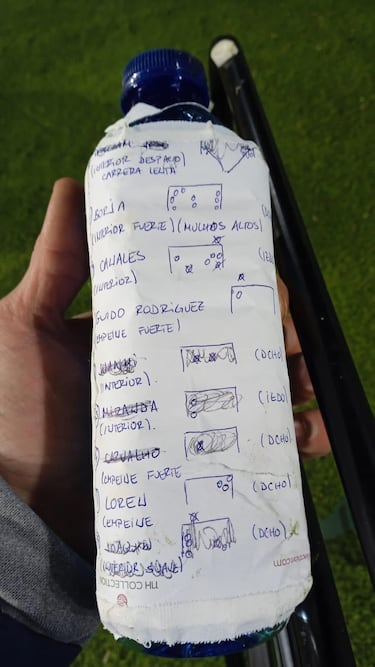 (INTERIOR DESPACIO
CARRERA LENTA)
BORJA
(INTERIOR FUERTE) (MUCHOS ALTOS)
CANALES
(INTERIOR)
GUIDO RODRÍGUEZ
(EMPEINE FUERTE)
JUANMI (DCHO)
(INTERIOR).
MIRANDA (IZDO)
(INTERIOR).
CARVALHO (DCHO)
(EMPEINE FUERTE
LOREN (DCHO)
(EMPEINE
JOAQUÍN (DCHO)
(INTERIOR SUAVE)
NH COLLECTION